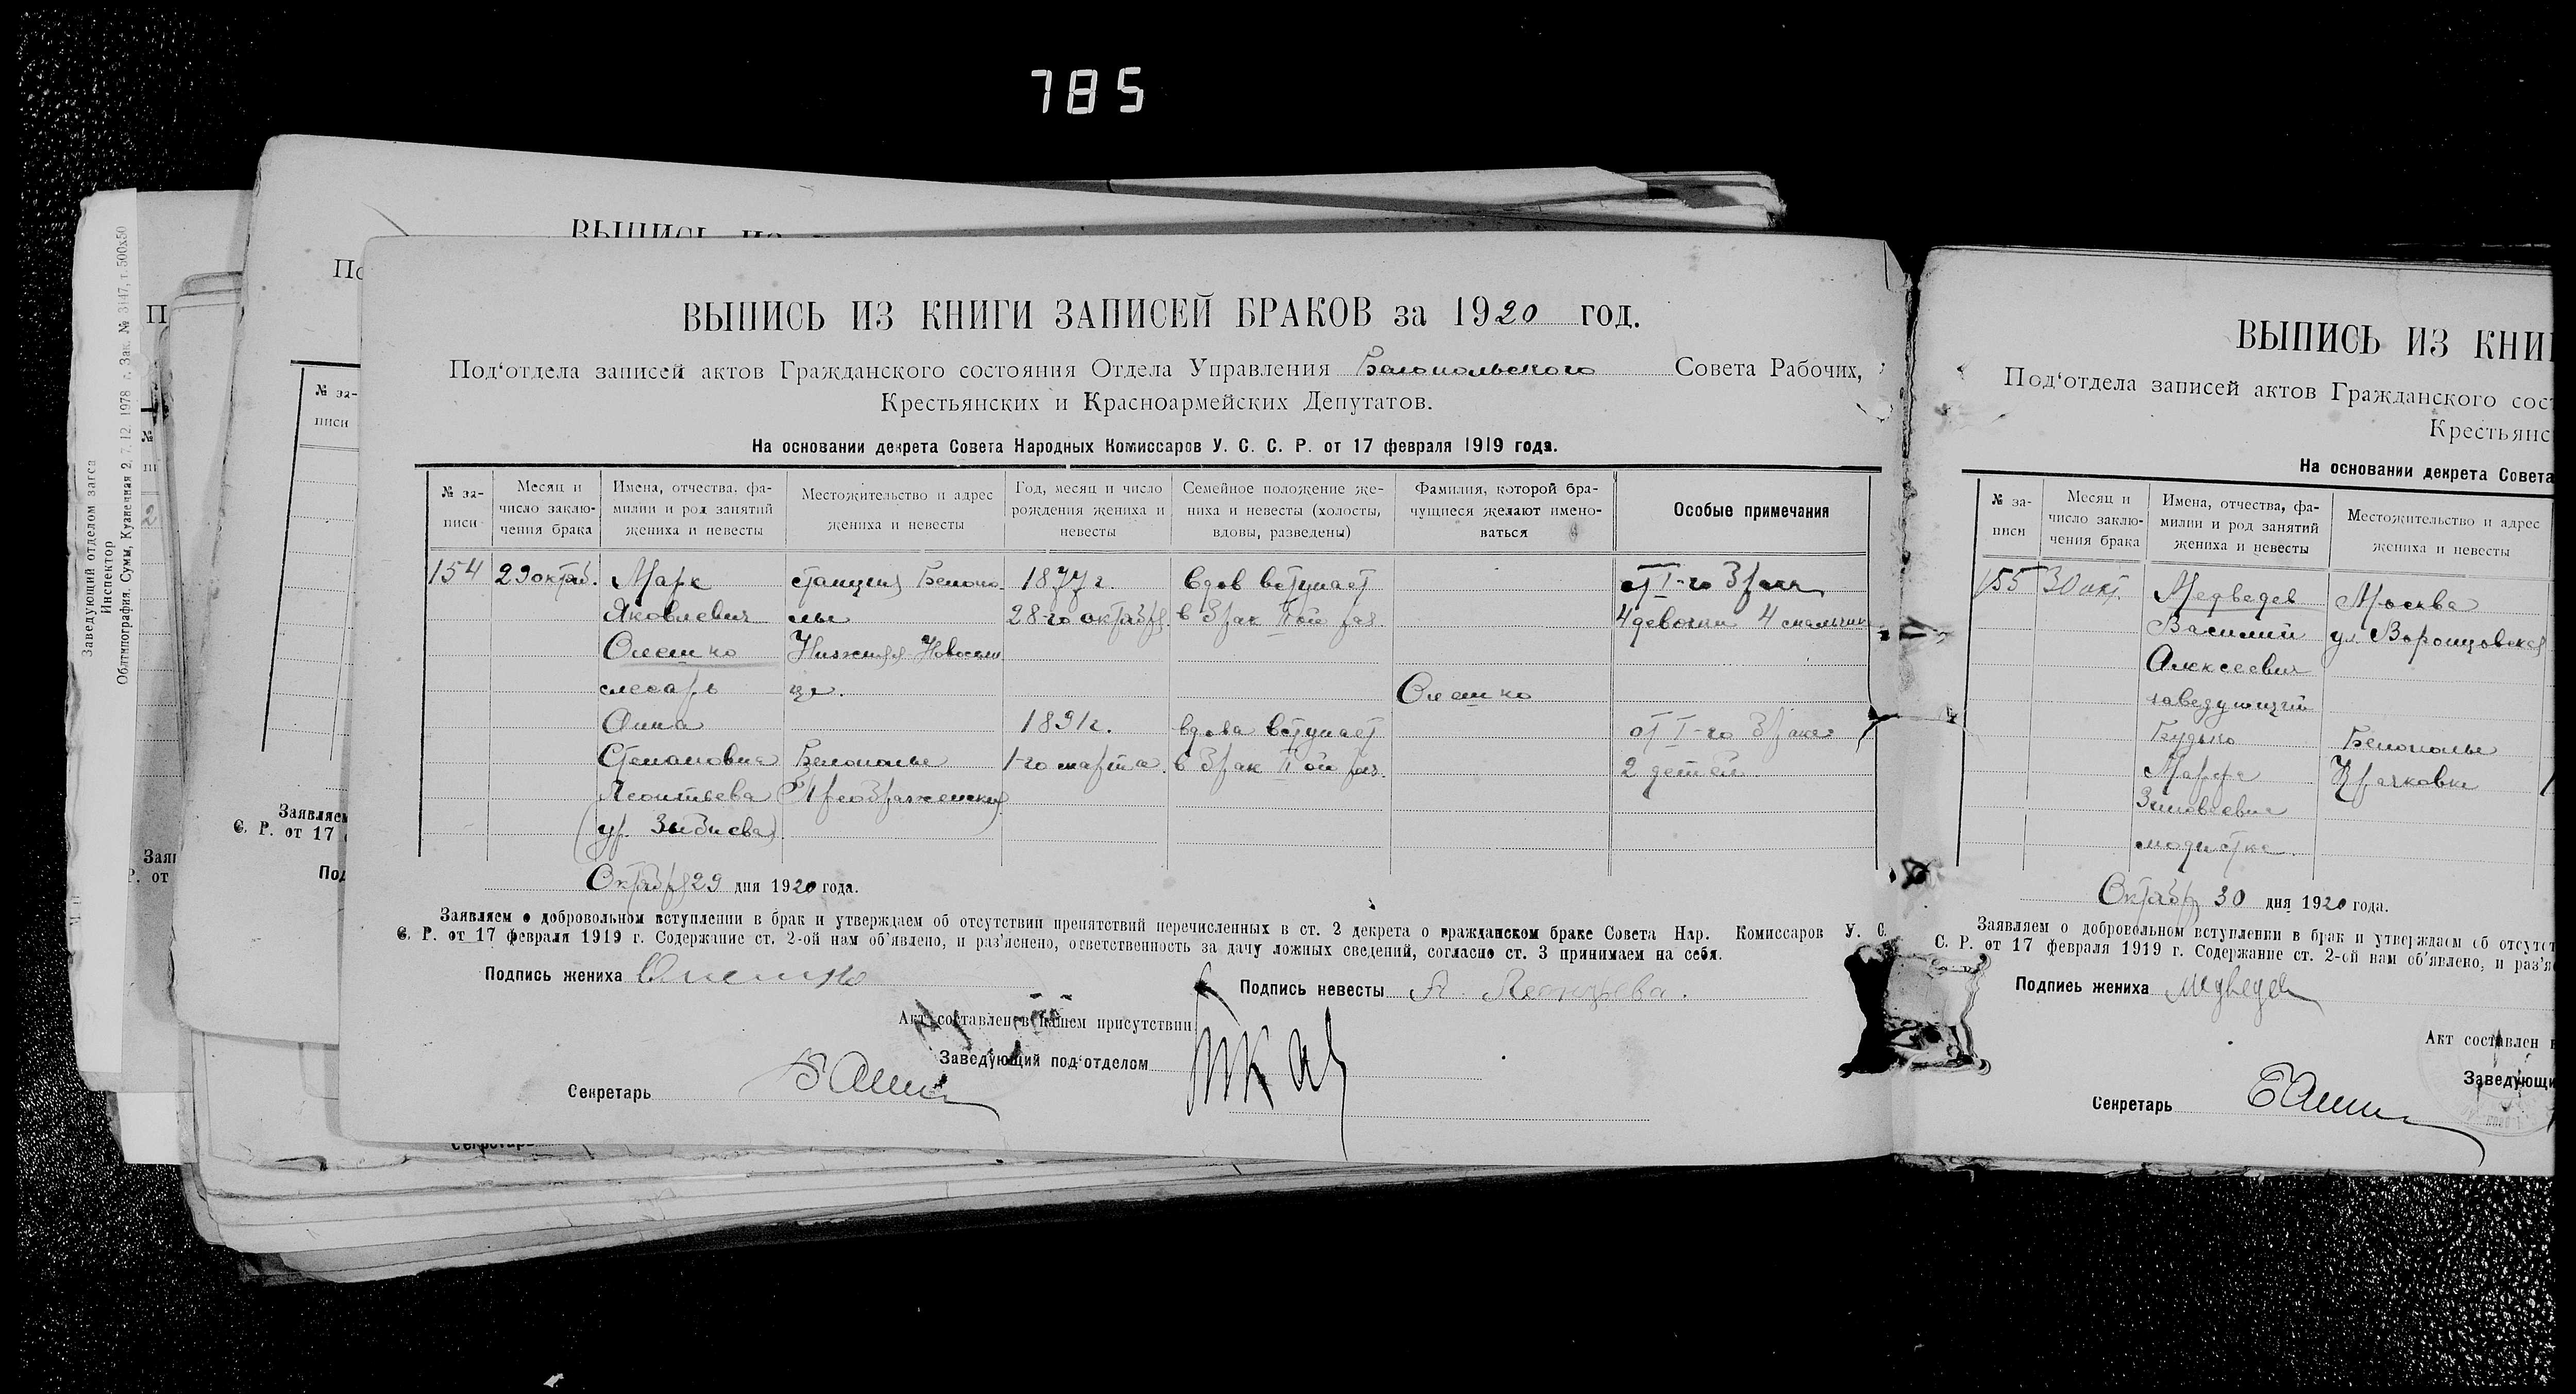 785
ВЫПИСЬ ИЗ КНИГИ ЗАПИСЕЙ БРАКОВ за 1920 год.
Под‘отдела записей актов Гражданского состояния Отдела Управления Совета Рабочих,
Крестьянских и Красноармейских Депутатов.
На основании декрета Совета Народных Комиссаров У. С. С. Р. от 17 февраля 1919 года.
№ за-писи
Месяц и число заклю-чения брака
Имена, отчества, фа-милии и род занятий жениха и невесты
Местожительство и адрес жениха и невесты
Год, месяц и число рождения жениха и невесты
Семейное положение же-ниха и невесты (холосты, вдовы, разведены)
Фамилия, которой бра-чущиеся желают имено-ваться
Особые примечания
154 29 октяб. Марк станция Белопо- 1877 г. вдов вступает от I-го брака
Яковлевич лье 28-го октября в брак II ой раз 4 девочки 4 мальчик
Олешко Нижняя Новосели
слесарь ца. Олешко
Анна 1891 г. вдова вступает от I-го брака
Степановна Белополье 1-го марта в брак II ой раз. 2 детей
Леонтьева (Преображенская)
(ур. )
Октября 29 дня 1920 года.
Заявляем о добровольном вступлении в брак и утверждаем об отсутствии препятствий перечисленных в ст. 2 декрета о гражданском браке Совета Нар. Комиссаров У. С.
С. Р. от 17 февраля 1919 г. Содержание ст. 2-ой нам об‘явлено, и раз‘яснено, ответственность за дачу ложных сведений, согласно ст. 3 принимаем на себя.
Подпись жениха Олешко
Подпись невесты А. Леонтьева.
Акт составлен в нашем присутствии
Заведующий под‘отделом
Секретарь
ВЫПИСЬ ИЗ КНИ
Под‘отдела записей актов Гражданского сос
Крестьянс
На основании декрета Совета
№ за-писи
Месяц и число заклю-чения брака
Имена, отчества, фа-милии и род занятий жениха и невесты
Местожительство и адрес жениха и невесты
155 30 окт. Медведев Москва
Василий ул. Воронцовская
Алексеевич
заведующий
Будько Белополье
Марфа Крачковка
Зиновьевна
модистка
Октября 30 дня 1920 года.
Заявляем о добровольном вступлении в брак и утверждаем об отсутст
С. Р. от 17 февраля 1919 г. Содержание ст. 2-ой нам об‘явлено, и раз‘я
Подпись жениха Медведев
Акт составлен в
Заведующи
Секретарь
Заведующий отделом загса
Инспектор
Облтипография. Сумы, Кузнечная 2, 7.12. 1978 г. Зак. № 3147, т. 500х50
№ за-
писи
Заявляем
С. Р. от 17
Под